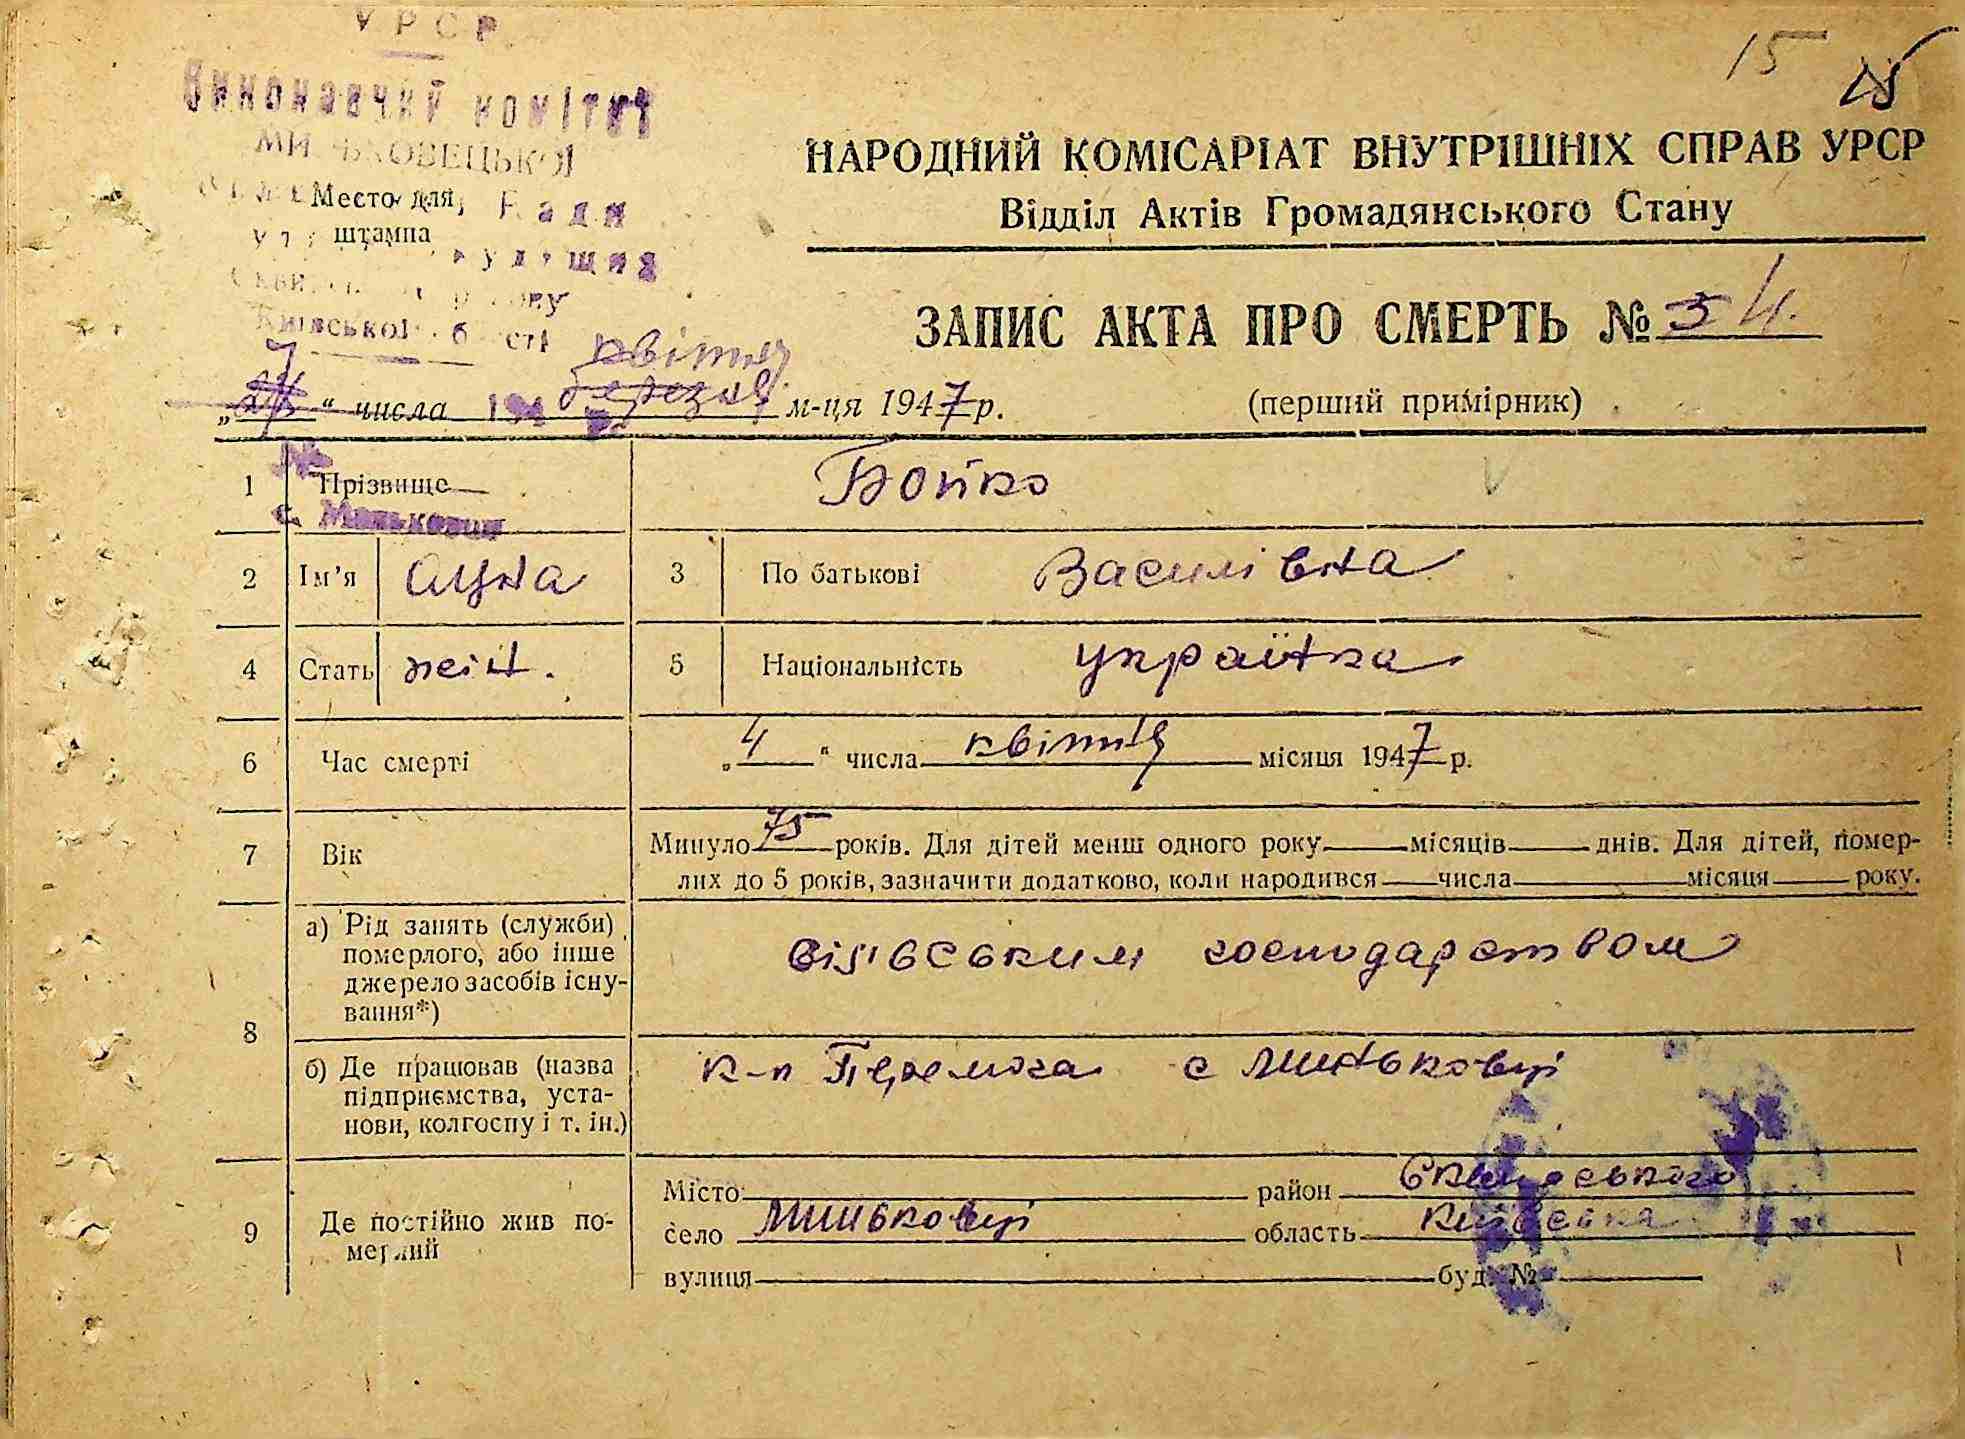 УРСР
15 15
Виконавчий комітет
НАРОДНИЙ КОМІСАРІАТ ВНУТРІШНІХ СПРАВ УРСР
Место для Ради
Відділ Актів Громадянського Стану
штампа
ЗАПИС АКТА ПРО СМЕРТЬ № 34.
Київської
7 квітня
„24“ числа березня м-ця 1947 р.
(перший примірник)
1 Прізвище Бойко
с. Маньківці
2 Ім'я
3 По батькові Василівна
4 Стать жін.
5 Національність українка
6 Час смерті „4“ числа квітня місяця 1947 р.
7 Вік Минуло 75 років. Для дітей менш одного року місяців днів. Для дітей, помер-
лих до 5 років, зазначити додатково, коли народився числа місяця року.
8 а) Рід занять (служби) померлого, або інше джерело засобів існу-
вання*)
господарством
б) Де працював (назва підприємства, уста-
нови, колгоспу і т. ін.)
к-п Перемога с Миньковці
9 Де постійно жив по-
мерлий
Місто район Сквирського
село Миньковці область Київська
вулиця буд. №